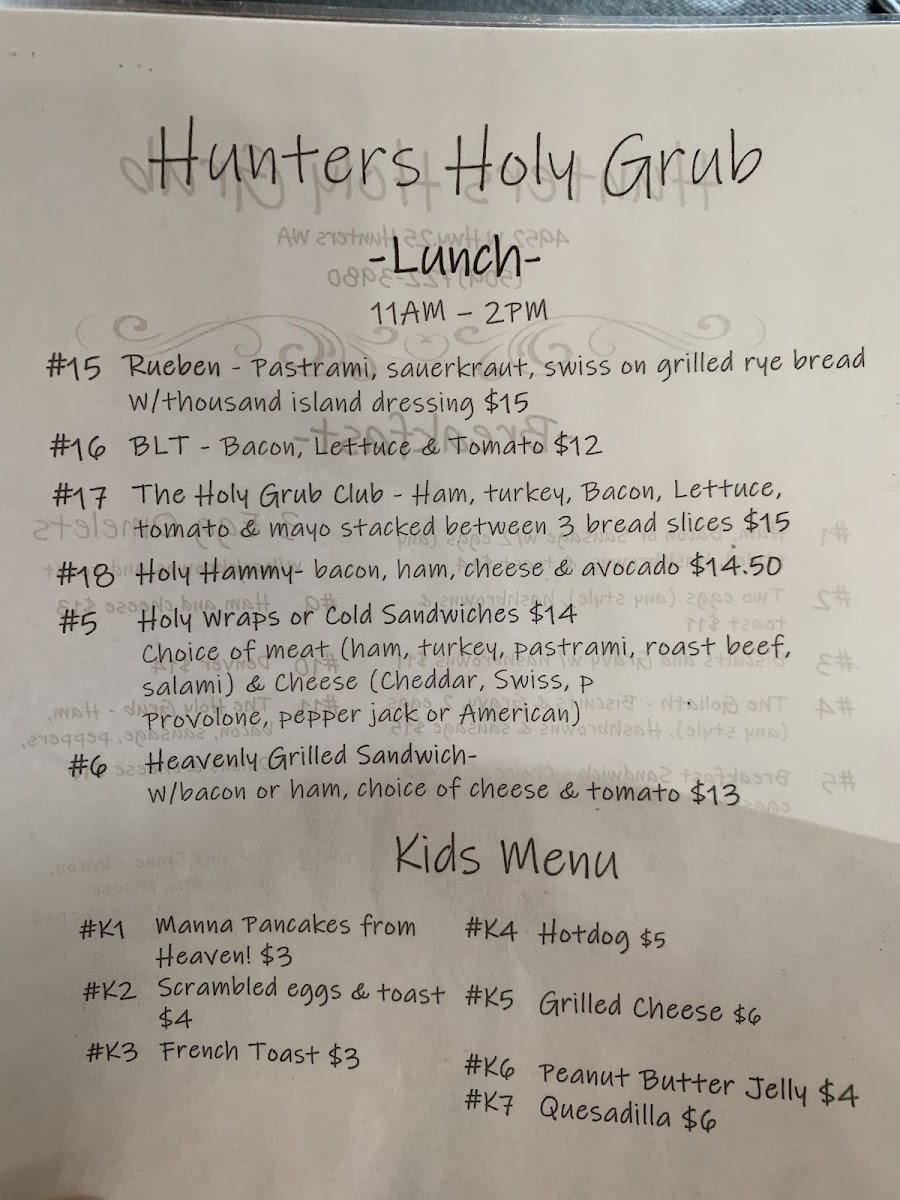 Hunters Holy Grub
-Lunch-
11AM - 2PM
#15 Rueben - Pastrami, sauerkraut, swiss on grilled rye bread
w/thousand island dressing $15
#16 BLT - Bacon, Lettuce & Tomato $12
#17 The Holy Grub Club - Ham, turkey, Bacon, Lettuce,
tomato & mayo stacked between 3 bread slices $15
#18 Holy Hammy- bacon, ham, cheese & avocado $14.50
#5 Holy Wraps or Cold Sandwiches $14
Choice of meat (ham, turkey, pastrami, roast beef,
salami) & Cheese (Cheddar, Swiss, p
Provolone, pepper jack or American)
#6 Heavenly Grilled Sandwich-
w/bacon or ham, choice of cheese & tomato $13
Kids Menu
#K1 Manna Pancakes from
Heaven! $3
#K2 Scrambled eggs & toast
$4
#K3 French Toast $3
#K4 Hotdog $5
#K5 Grilled Cheese $6
#K6 Peanut Butter Jelly $4
#K7 Quesadilla $6